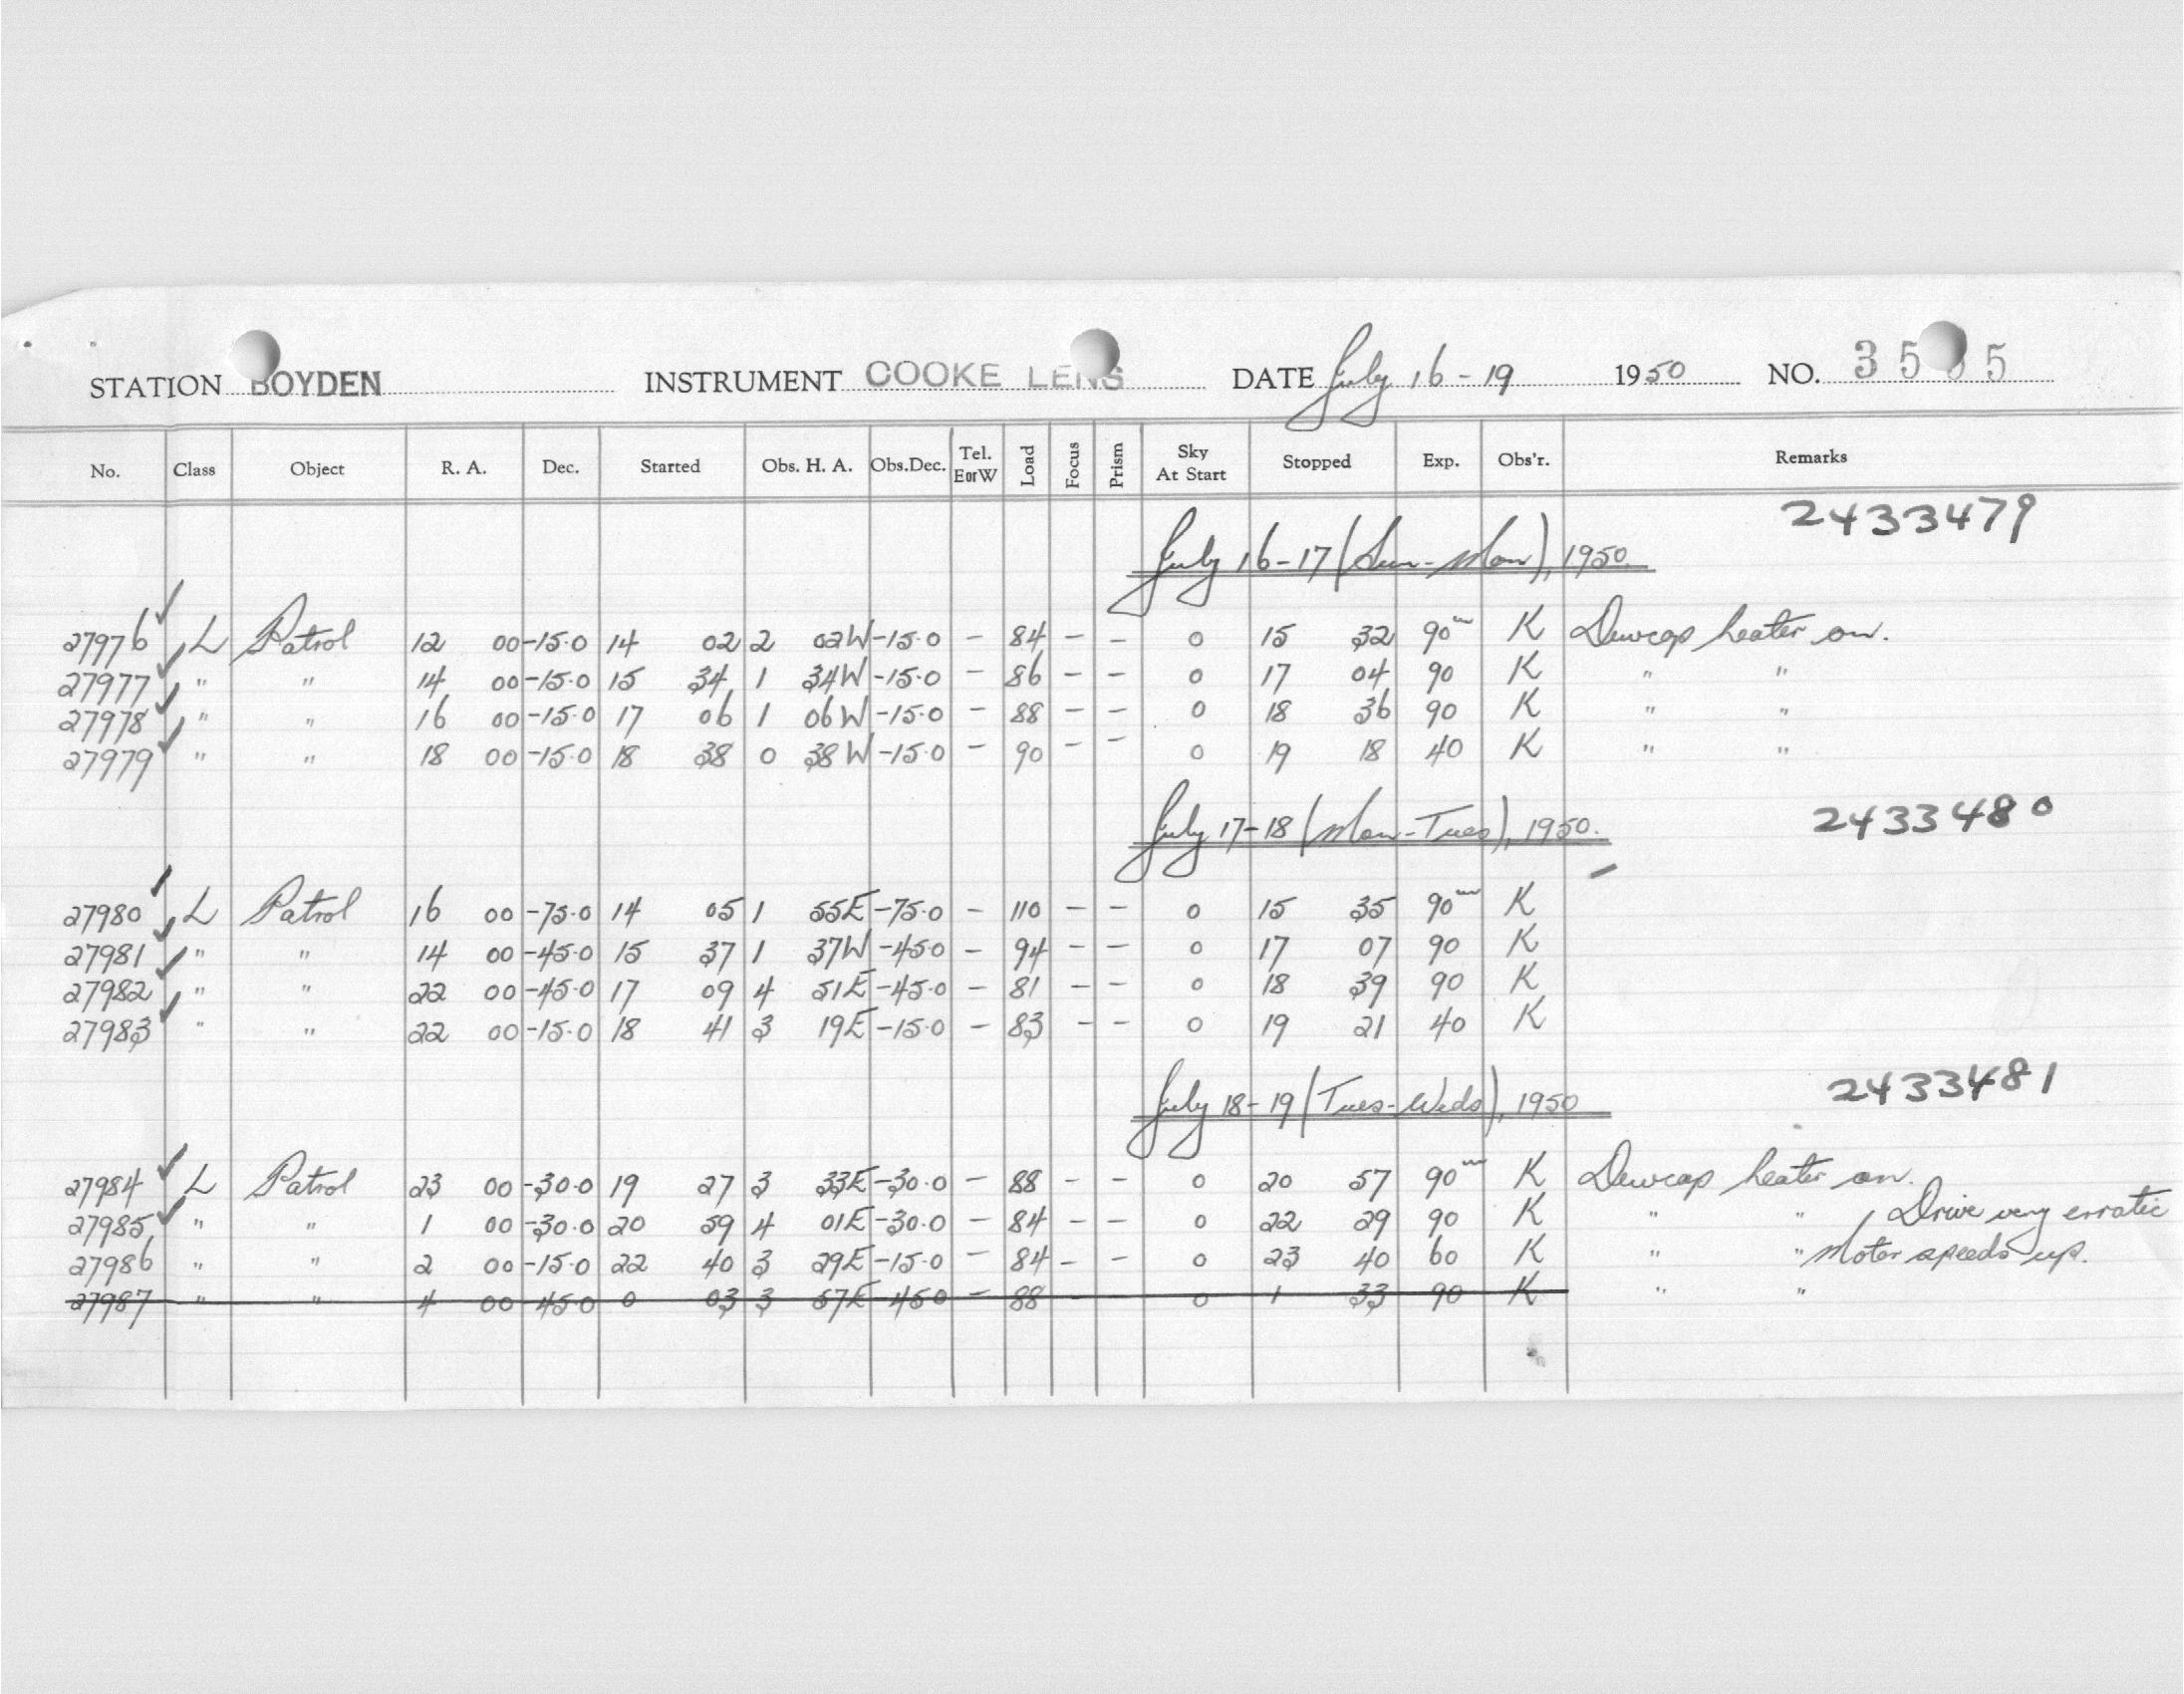 STATION BOYDEN INSTRUMENT COOKE LENS DATE July 16-19 1950 NO. 35 5
No. Class Object R. A. Dec. Started Obs. H. A. Obs.Dec. Tel. E or W Load Focus Prism Sky At Start Stopped Exp. Obs'r. Remarks
2433479
July 16-17 (Sun-Mon), 1950.
27976 L Patrol 12 00 -15.0 14 02 2 02W -15.0 - 84 - - 0 15 32 90m K Dewcap heater on.
27977 " " 14 00 -15.0 15 34 1 34W -15.0 - 86 - - 0 17 04 90 K " "
27978 " " 16 00 -15.0 17 06 1 06W -15.0 - 88 - - 0 18 36 90 K " "
27979 " " 18 00 -15.0 18 38 0 38W -15.0 - 90 - - 0 19 18 40 K " "
2433480
July 17-18 (Mon-Tues), 1950.
27980 L Patrol 16 00 -75.0 14 05 1 55E -75.0 - 110 - - 0 15 35 90m K
27981 " " 14 00 -45.0 15 37 1 37W -45.0 - 94 - - 0 17 07 90 K
27982 " " 22 00 -45.0 17 09 4 51E -45.0 - 81 - - 0 18 39 90 K
27983 " " 22 00 -15.0 18 41 3 19E -15.0 - 83 - - 0 19 21 40 K
2433481
July 18-19 (Tues-Weds), 1950
27984 L Patrol 23 00 -30.0 19 27 3 33E -30.0 - 88 - - 0 20 57 90m K Dewcap heater on.
27985 " " 1 00 -30.0 20 59 4 01E -30.0 - 84 - - 0 22 29 90 K " " , Drive very erratic
27986 " " 2 00 -15.0 22 40 3 29E -15.0 - 84 - - 0 23 40 60 K " " Motor speeds up.
27987 " " 4 00 -45.0 0 03 3 57E -45.0 - 88 0 1 33 90 K " "